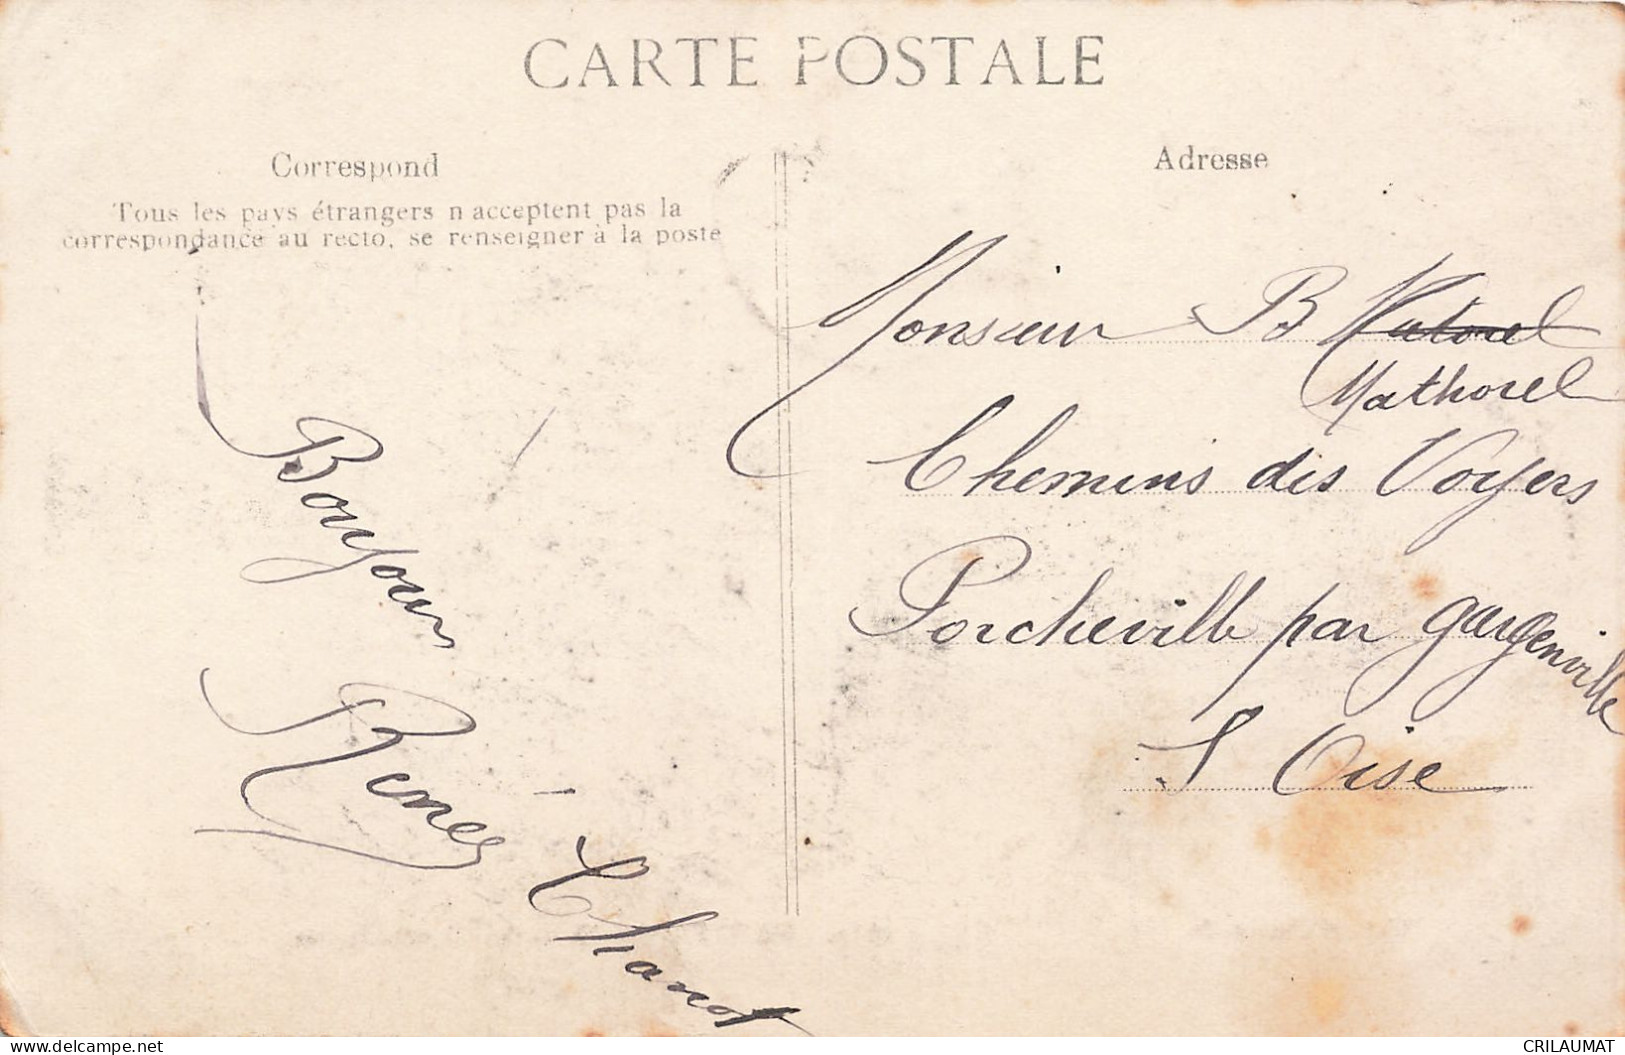 CARTE POSTALE
Correspond
Tous les pays étrangers n acceptent pas la
correspondance au recto, se renseigner à la poste
Bonjour
René
Chanot
Adresse
Monsieur B Matorel
Mathorel
Chemins des Voyers
Porcheville par gargenville
S Oise
delcampe.net
CRILAUMAT